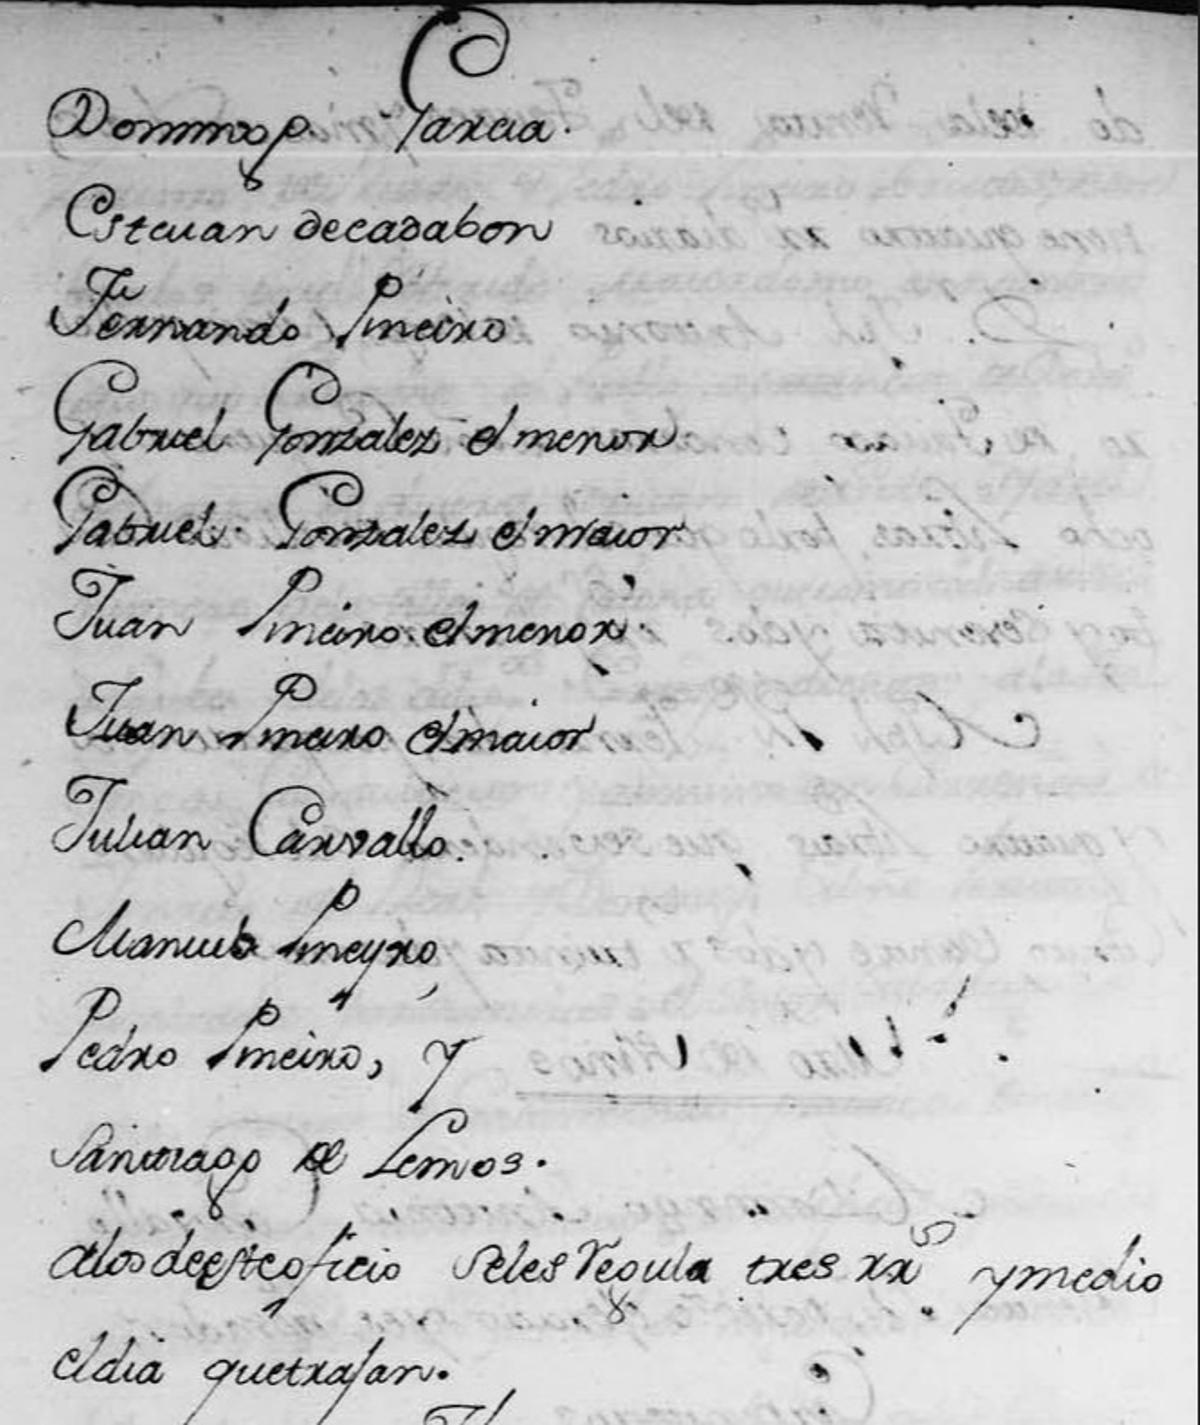 Domingo Garcia.
Estevan decadabon
Fernando Pineiro
Gabriel Gonzalez el menor
Gabriel Gonzalez el maior
Juan Pineiro el menor
Juan Pineiro el maior
Julian Carvallo.
Manuel Pineyro,
Pedro Pineiro, y
Santiago de Lemos.
alos deesteoficio seles Regula tres rrs y medio
el dia que